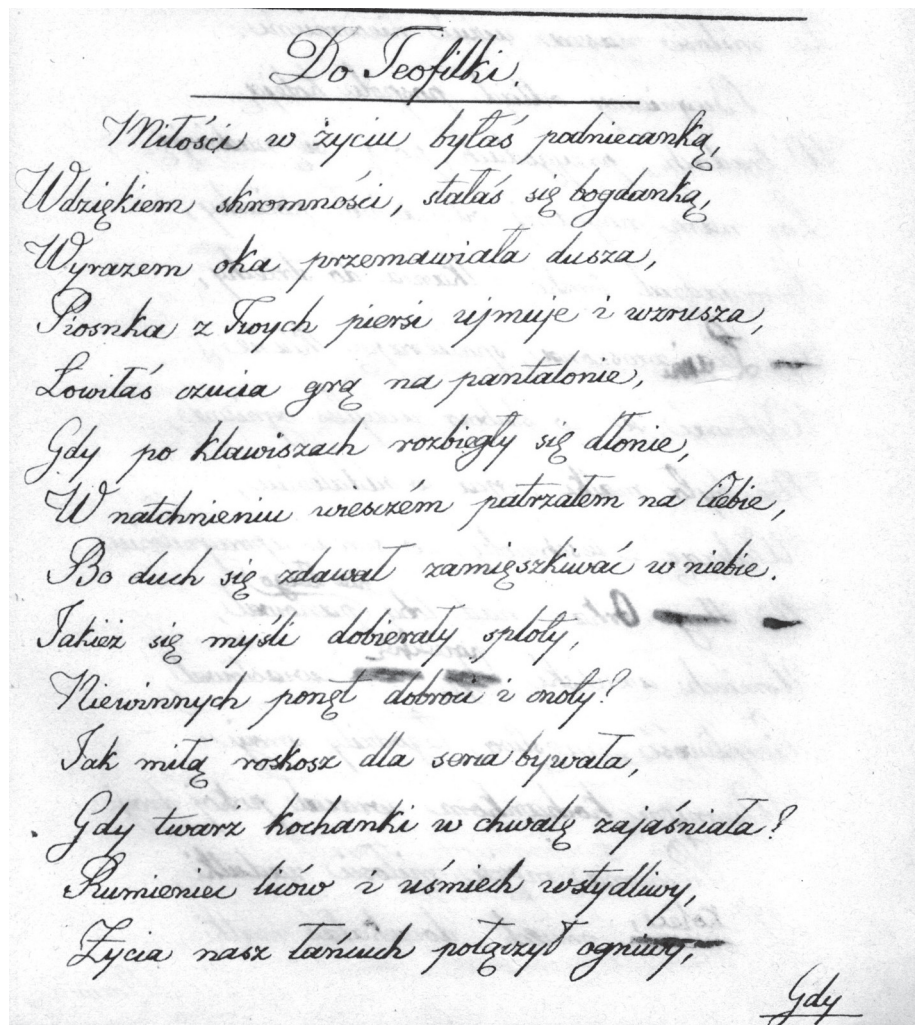 Do Teofilki
Miłości w życiu byłaś podniecanką,
Wdziękiem skromności, stałaś się bogdanką,
Wyrazem oka przemawiała dusza,
Piosnka z Twych piersi ujmuje i wzrusza,
Łowiłaś czucia grą na pantalonie,
Gdy po klawiszach rozbiegły się dłonie,
W natchnieniu wieszczém patrzałem na Ciebie,
Bo duch się zdawał zamięszkiwać w niebie.
Jakież się myśli dobierały sploty,
Niewinnych ponęt dobroci i cnoty?
Jak miłą roskosz dla serca bywała,
Gdy twarz kochanki w chwałę zajaśniała?
Rumieniec liców i uśmiech wstydliwy,
Życia nasz łańcuch połączył ogniwy,
Gdy